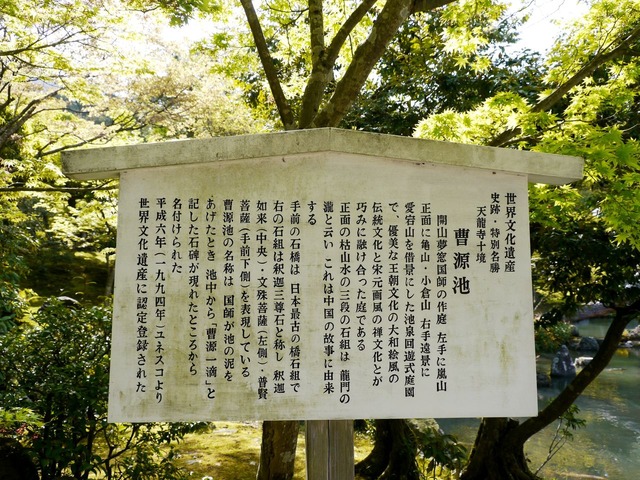 世界文化遺産
史跡・特別名勝
天龍寺十境
曹源池
開山夢窓国師の作庭 左手に嵐山
正面に亀山・小倉山 右手遠景に
愛宕山を借景にした池泉回遊式庭園
で、優美な王朝文化の大和絵風の
伝統文化と宋元画風の禅文化とが
巧みに融け合った庭である
正面の枯山水の三段の石組は 龍門の
瀧と云い これは中国の故事に由来
する
手前の石橋は 日本最古の橋石組で
右の石組は釈迦三尊石と称し 釈迦
如来(中央)・文殊菩薩(左側)・普賢
菩薩(手前下側)を表現している
曹源池の名称は 国師が池の泥を
あげたとき 池中から「曹源一滴」と
記した石碑が現れたところから
名付けられた
平成六年(一九九四年)ユネスコより
世界文化遺産に認定登録された